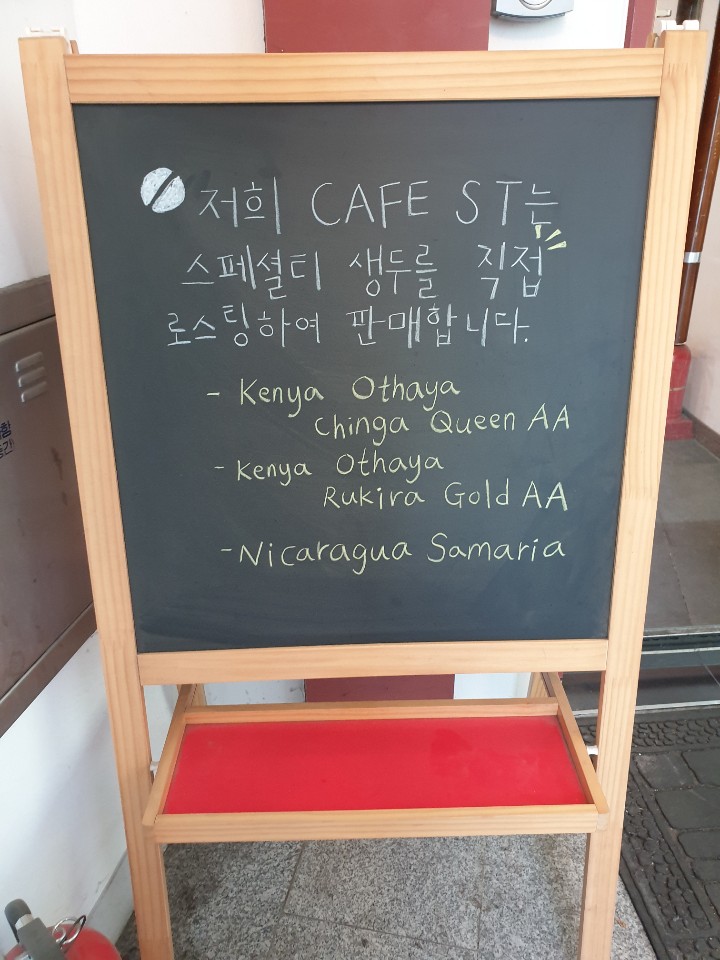 저희 CAFE ST는
스페셜티 생두를 직접
로스팅하여 판매합니다.
- Kenya Othaya
Chinga Queen AA
- Kenya Othaya
Rukira Gold AA
- Nicaragua Samaria